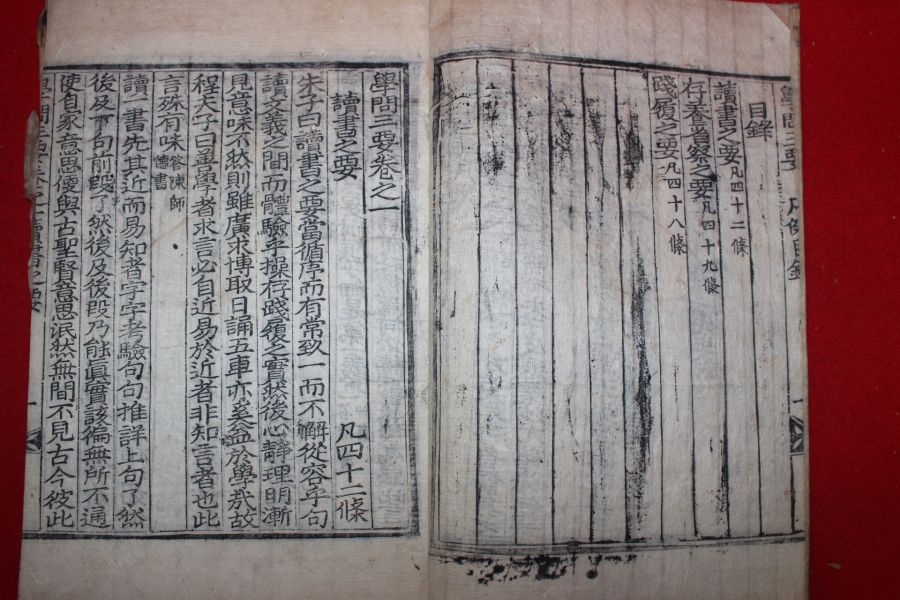 目錄
讀書之要凡四十二條
存養省察之要凡四十九條
踐履之要凡四十八條
學問三要卷之一
讀書之要 凡四十二條
朱子曰讀書之要當循序而有常致一而不懈從容乎句
讀文義之間而體驗乎操存踐履之實然後心靜理明漸
見意味不狀則雖廣求博取日誦五車亦奚益於學哉故
程夫子曰善學者求言必自近易於近者非知言者也此
言殊有味答陳師德書
讀一書先其近而易知者字字考驗句句推詳上句了然
後及下句前段了然後及後段乃能眞實該徧無所不通
使自家意思便與古聖賢意思泯然無間不見古今彼此